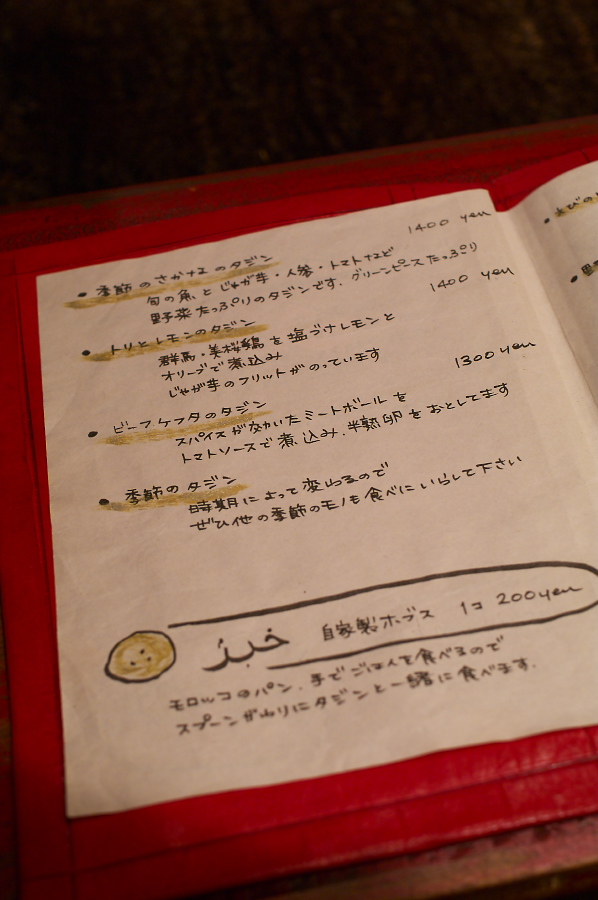 1400 yen
• 季節のさかなのタジン
旬の魚とじゃが芋・人参・トマトなど
野菜たっぷりのタジンです。グリーンピースたっぷり
1400 yen
• トリとレモンのタジン
群馬・美桜鶏を塩づけレモンと
オリーブで煮込み
じゃが芋のフリットがのっています
1300 yen
• ビーフケフタのタジン
スパイスが効いたミートボールを
トマトソースで煮込み、半熟卵をおとしてます
• 季節のタジン
時期によって変わるので
ぜひ他の季節のモノも食べにいらして下さい
خبز 自家製ホブス 1コ 200yen
モロッコのパン、手でごはんを食べるので
スプーンがわりにタジンと一緒に食べます。
• えびの